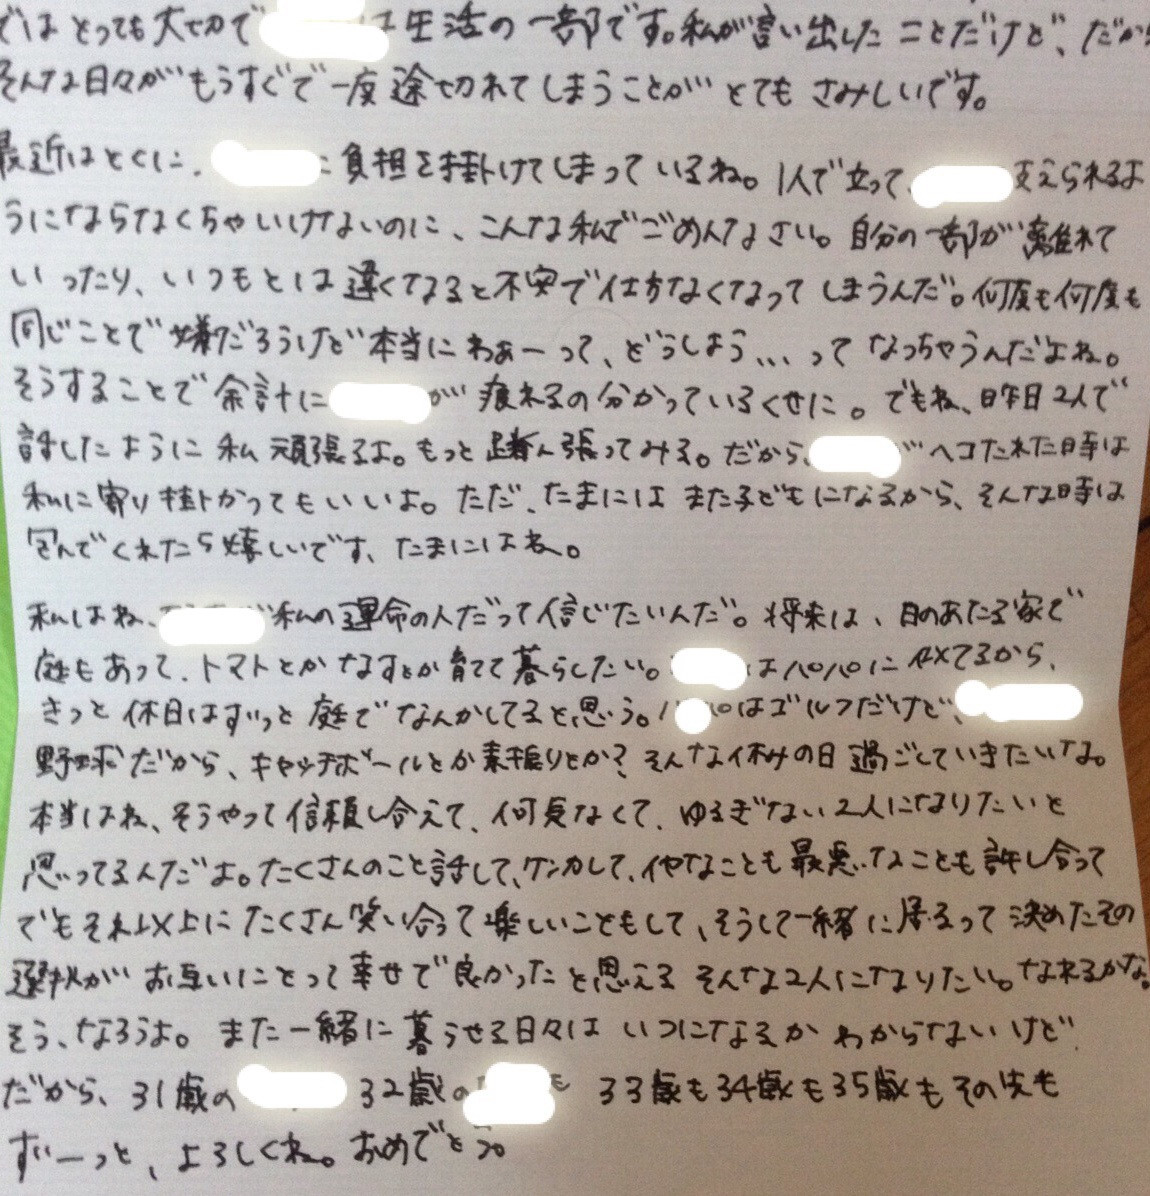 ではとっても大切で は生活の一部です。私が言い出したことだけど、だから
そんな日々がもうすぐで一度途切れてしまうことがとてもさみしいです。
最近はとくに、 に負担を掛けてしまっているね。1人で立って、 支えられるよ
うにならなくちゃいけないのに、こんな私でごめんなさい。自分の一部が離れて
いったり、いつもとは違くなると不安で仕方なくなってしまうんだ。何度も何度も
同じことで嫌だろうけど本当にわぁーって、どうしよう...ってなっちゃうんだよね。
そうすることで余計に が疲れるの分かっているくせに。でもね、昨日2人で
話したように私頑張るよ。もっと踏ん張ってみる。だから、 がヘコたれた時は
私に寄り掛かってもいいよ。ただ、たまにはまた子どもになるから、そんな時は
包んでくれたら嬉しいです、たまにはね。
私はね、 が私の運命の人だって信じたいんだ。将来は、日のあたる家で
庭もあって、トマトとかなすとか育てて暮らしたい。 はパパに似てるから、
きっと休日はずっと庭でなんかしてると思う。パパはゴルフだけど、
野球だから、キャッチボールとか素振りとか?そんな休みの日過ごしていきたいな。
本当はね、そうやって信頼し合えて、何気なくて、ゆるぎない2人になりたいと
思ってるんだよ。たくさんのこと話して、ケンカして、イヤなことも最悪なことも許し合って
でもそれ以上にたくさん笑い合って楽しいこともして、そうして一緒に居るって決めたその
選択がお互いにとって幸せで良かったと思えるそんな2人になりたい。なれるかな。
そう、なろうよ。また一緒に暮らせる日々はいつになるかわからないけど
だから、31歳の 32歳の も 33歳も34歳も35歳もその先も
ずーっと、よろしくね。おめでとう。